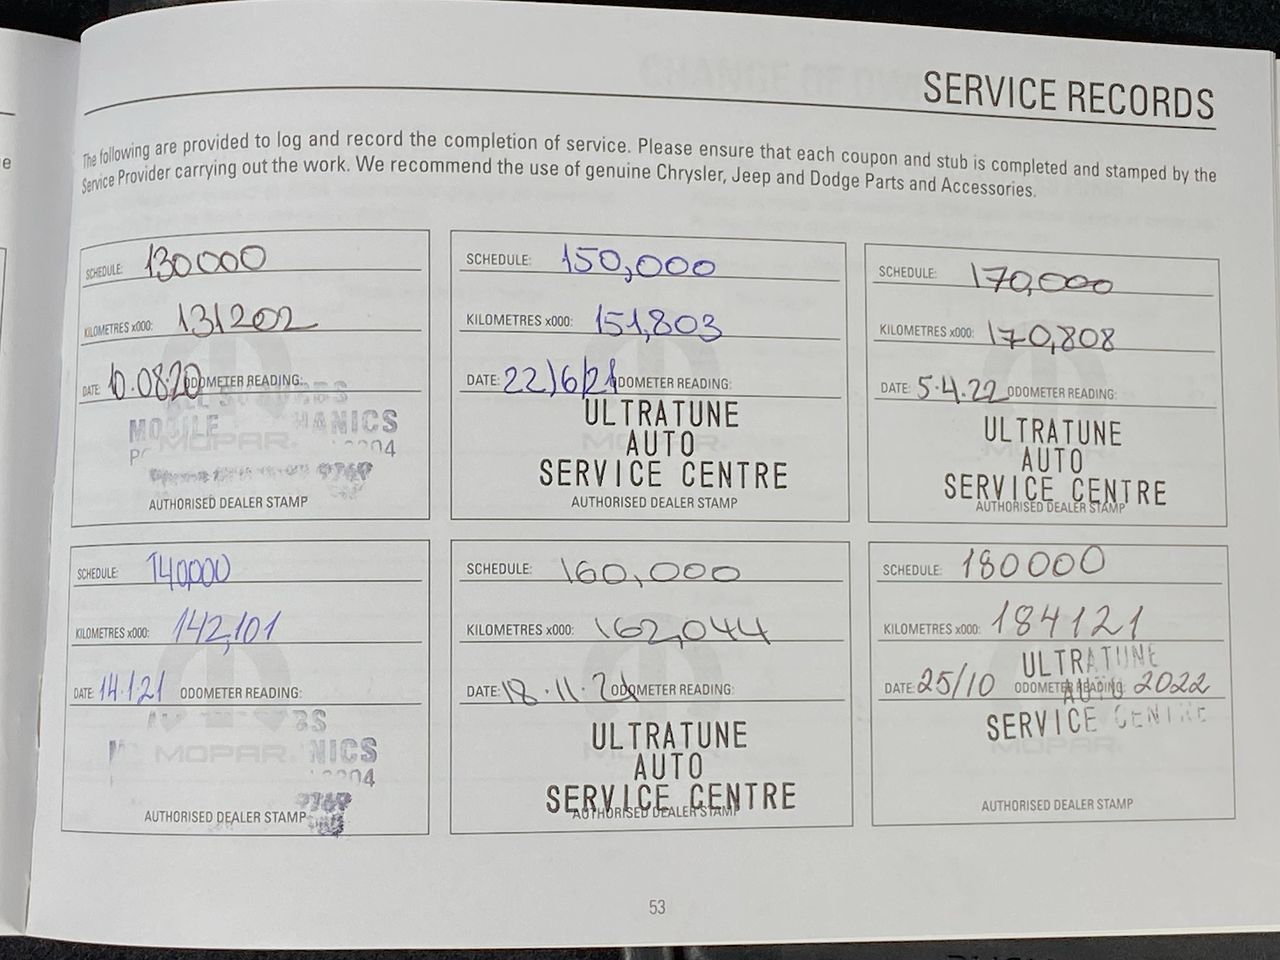 SERVICE RECORDS
The following are provided to log and record the completion of service. Please ensure that each coupon and stub is completed and stamped by the
Service Provider carrying out the work. We recommend the use of genuine Chrysler, Jeep and Dodge Parts and Accessories.
SCHEDULE: 130000
KILOMETRES x000: 131202
DATE: 10.08.20 ODOMETER READING:
MOBILE HANICS
MOPAR
AUTHORISED DEALER STAMP
SCHEDULE: 140,000
KILOMETRES x000: 142,101
DATE: 14.1.21 ODOMETER READING:
MOPAR NICS
AUTHORISED DEALER STAMP
SCHEDULE: 150,000
KILOMETRES x000: 151,803
DATE: 22/6/21 ODOMETER READING:
ULTRATUNE
AUTO
SERVICE CENTRE
AUTHORISED DEALER STAMP
SCHEDULE: 160,000
KILOMETRES x000: 162,044
DATE: 18.11.21 ODOMETER READING:
ULTRATUNE
AUTO
SERVICE CENTRE
AUTHORISED DEALER STAMP
SCHEDULE: 170,000
KILOMETRES x000: 170,808
DATE: 5.4.22 ODOMETER READING:
ULTRATUNE
AUTO
SERVICE CENTRE
AUTHORISED DEALER STAMP
SCHEDULE: 180000
KILOMETRES x000: 184121
ULTRATUNE
DATE: 25/10 ODOMETER READING: 2022
AUTO
SERVICE CENTRE
MOPAR
AUTHORISED DEALER STAMP
53